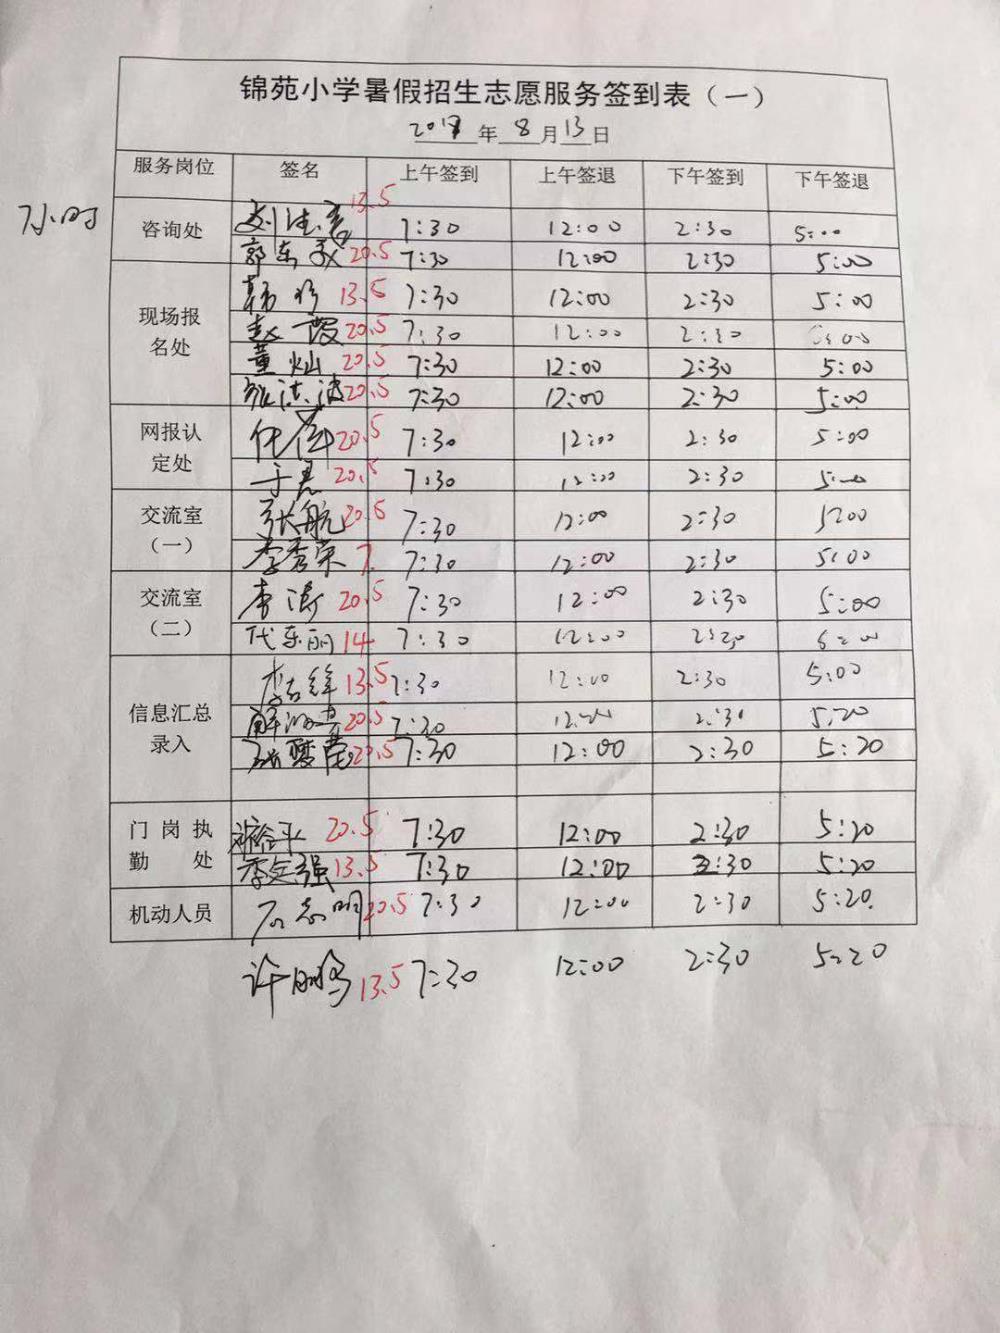 锦苑小学暑假招生志愿服务签到表（一）
年 8 月 13 日
服务岗位 签名 上午签到 上午签退 下午签到 下午签退
7小时
咨询处 13.5 7:30 12:00 2:30 5:00
郭东 20.5 7:30 12:00 2:30 5:00
现场报名处 13.5 7:30 12:00 2:30 5:00
赵霞 20.5 7:30 12:00 2:30 5:00
董灿 20.5 7:30 12:00 2:30 5:00
张洁 20.5 7:30 12:00 2:30 5:00
网报认定处 20.5 7:30 12:00 2:30 5:00
于 20.5 7:30 12:00 2:30 5:00
交流室（一） 张航 20.5 7:30 12:00 2:30 5:00
李秀荣 7. 7:30 12:00 2:30 5:00
交流室（二） 李涛 20.5 7:30 12:00 2:30 5:00
代东丽 14 7:30 12:00 2:30
信息汇总录入 李 13.5 7:30 12:00 2:30 5:00
20.5 7:30 12:00 2:30 5:20
20.5 7:30 12:00 2:30 5:20
门岗执勤处 20.5 7:30 12:00 2:30 5:20
李文强 13.5 7:30 12:00 2:30 5:20
机动人员 石志明 20.5 7:30 12:00 2:30 5:20
许鹏 13.5 7:30 12:00 2:30 5:20